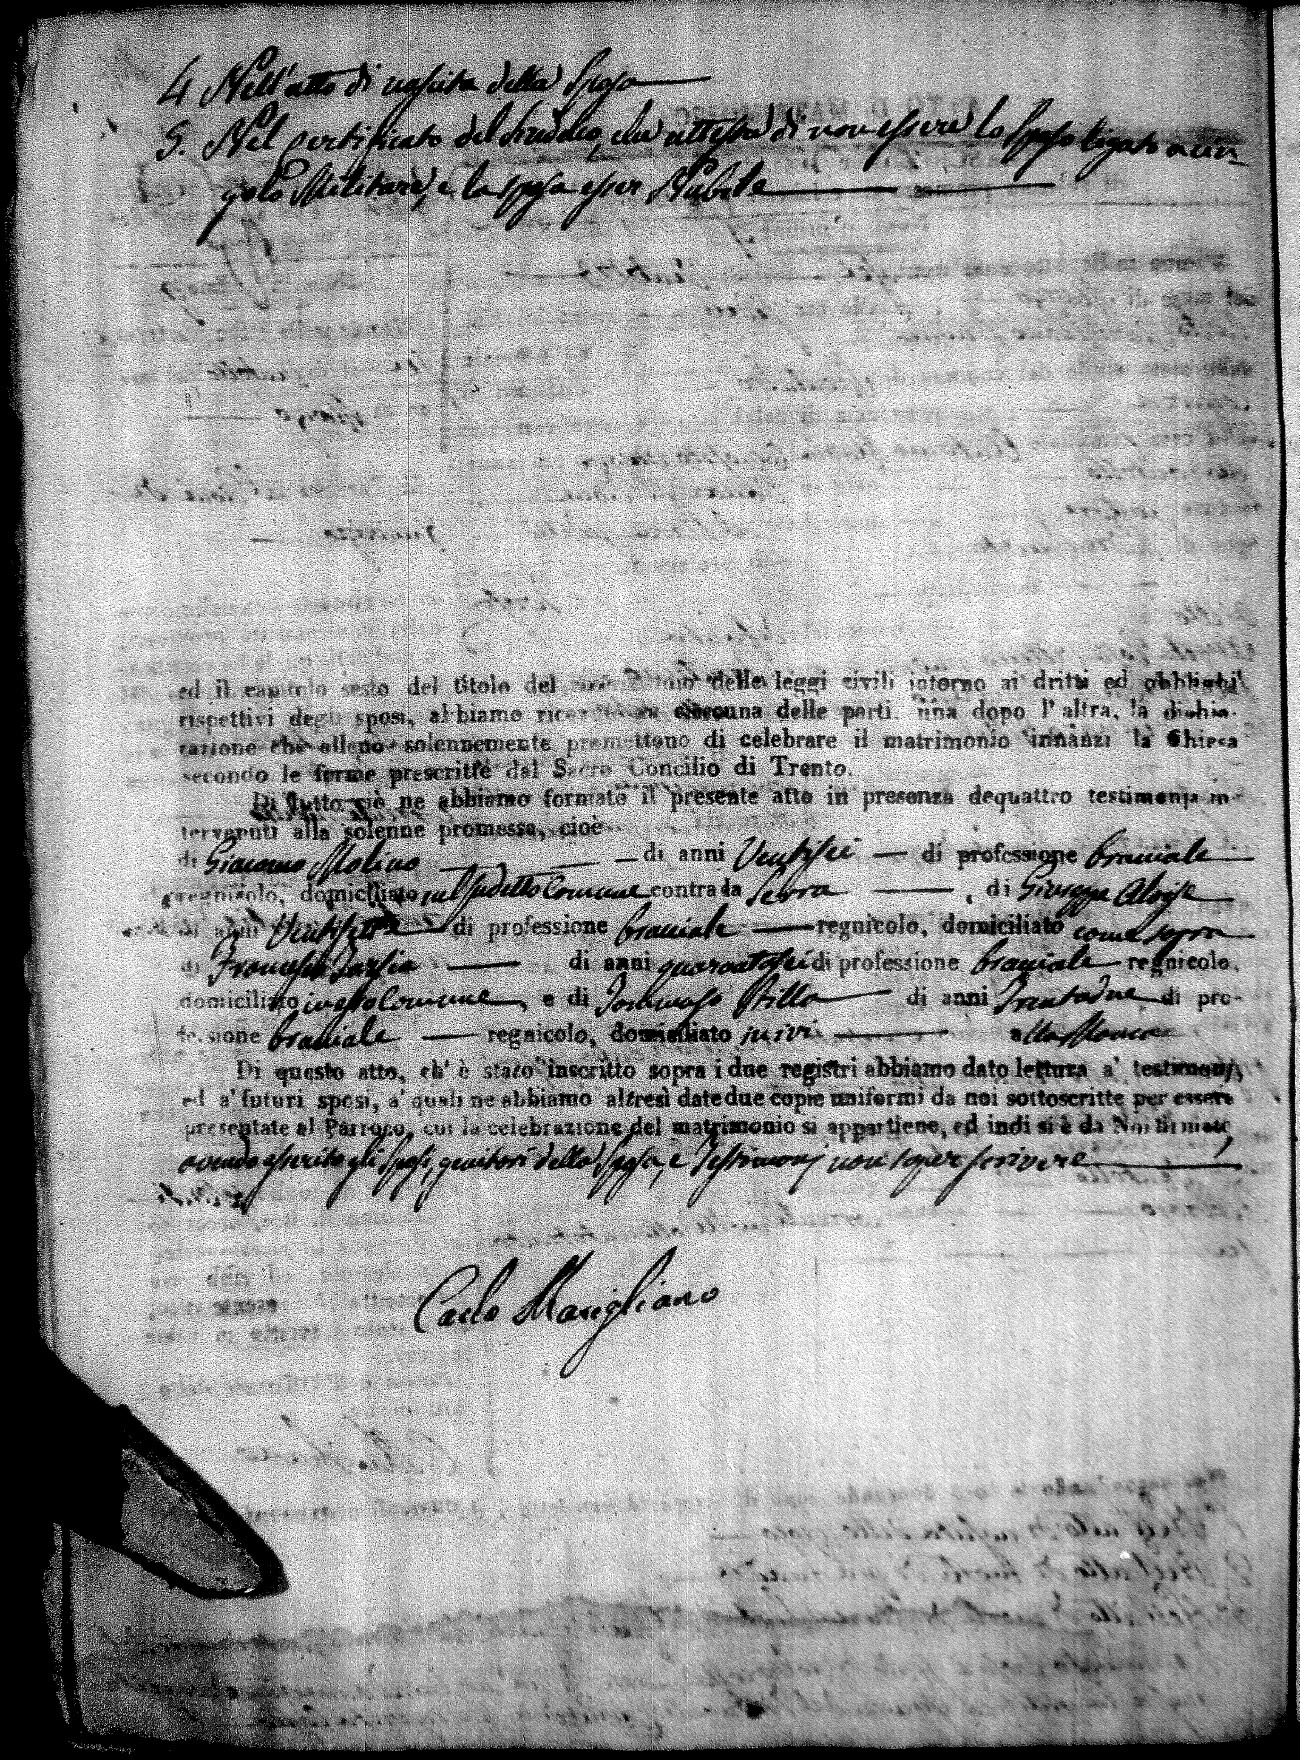 4 Nell'atto di nascita della Sposa
5. Nel certificato del Sindaco, che attesta di non essere lo Sposo legato a cin
golo Militare, e la sposa esser Nubile
ed il capitolo sesto del titolo del delle leggi civili intorno ai dritti ed obblighi
rispettivi degli sposi, abbiamo ricevuto da ciascuna delle parti una dopo l'altra, la dichia-
razione che elleno solennemente promettono di celebrare il matrimonio innanzi la Chiesa
secondo le forme prescritte dal Sacro Concilio di Trento.
Di tutto ciò ne abbiamo formato il presente atto in presenza dequattro testimonj in-
tervenuti alla solenne promessa, cioè
di Giacomo Molino di anni Ventisei di professione bracciale
regnicolo, domiciliato nel sudetto Comune contrada Serra , di Giuseppe Aloise
di anni Ventisette di professione bracciale regnicolo, domiciliato come sopra
di Francesco Tarsia di anni quarantasei di professione bracciale regnicolo,
domiciliato in esso Comune, e di Tommaso Pillo di anni Trentadue di pro-
fessione bracciale regnicolo, domiciliato ivi
Di questo atto, ch' è stato inscritto sopra i due registri abbiamo dato lettura a' testimonj,
ed a' futuri sposi, a' quali ne abbiamo altresì date due copie uniformi da noi sottoscritte per essere
presentate al Parroco, cui la celebrazione del matrimonio si appartiene, ed indi si è da Noi firmato
avendo asserito gli Sposi, genitori della Sposa, e Testimonj non saper scrivere
Carlo Marigliano